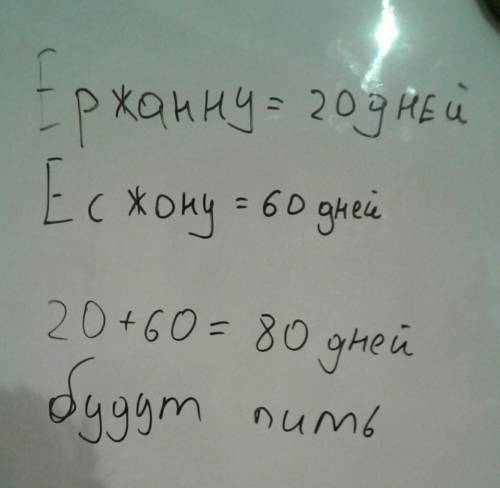 Ержанну = 20 дней
Есжону = 60 дней
20 + 60 = 80 дней
будут пить